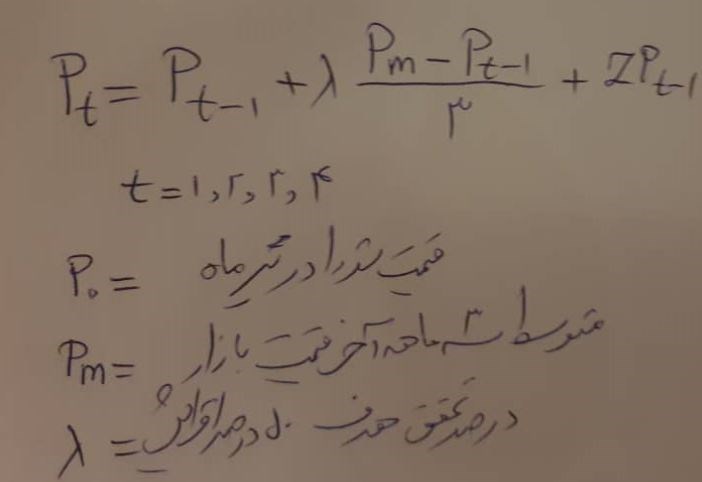 P_t = P_{t-1} + λ (P_m - P_{t-1}) / ۳ + ZP_{t-1}
t = ۱, ۲, ۳, ۴
P_۰ = قیمت در تیر ماه
P_m = متوسط ۳ ماهه آخر قیمت بازار
λ = درصد تحقق هدف ۵۰ درصد افزایش